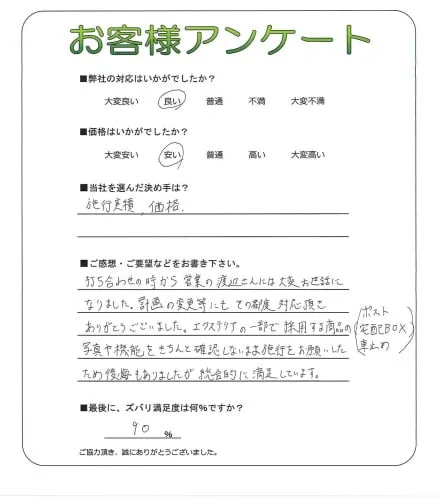 お客様アンケート
■弊社の対応はいかがでしたか?
大変良い 良い 普通 不満 大変不満
■価格はいかがでしたか?
大変安い 安い 普通 高い 大変高い
■当社を選んだ決め手は?
施行実積、価格.
■ご感想・ご要望などをお書き下さい。
打ち合わせの時から営業の渡辺さんには大変お世話に
なりました。計画の変更等にもその都度対応頂き
ありがとうございました。エクステリアの一部で採用する商品の(ポスト 宅配BOX 車止め)
写真や機能をきちんと確認しないまま施行をお願いした
ため後悔もありましたが総合的に満足しています。
■最後に、ズバリ満足度は何%ですか?
90 %
ご協力頂き、誠にありがとうございました。